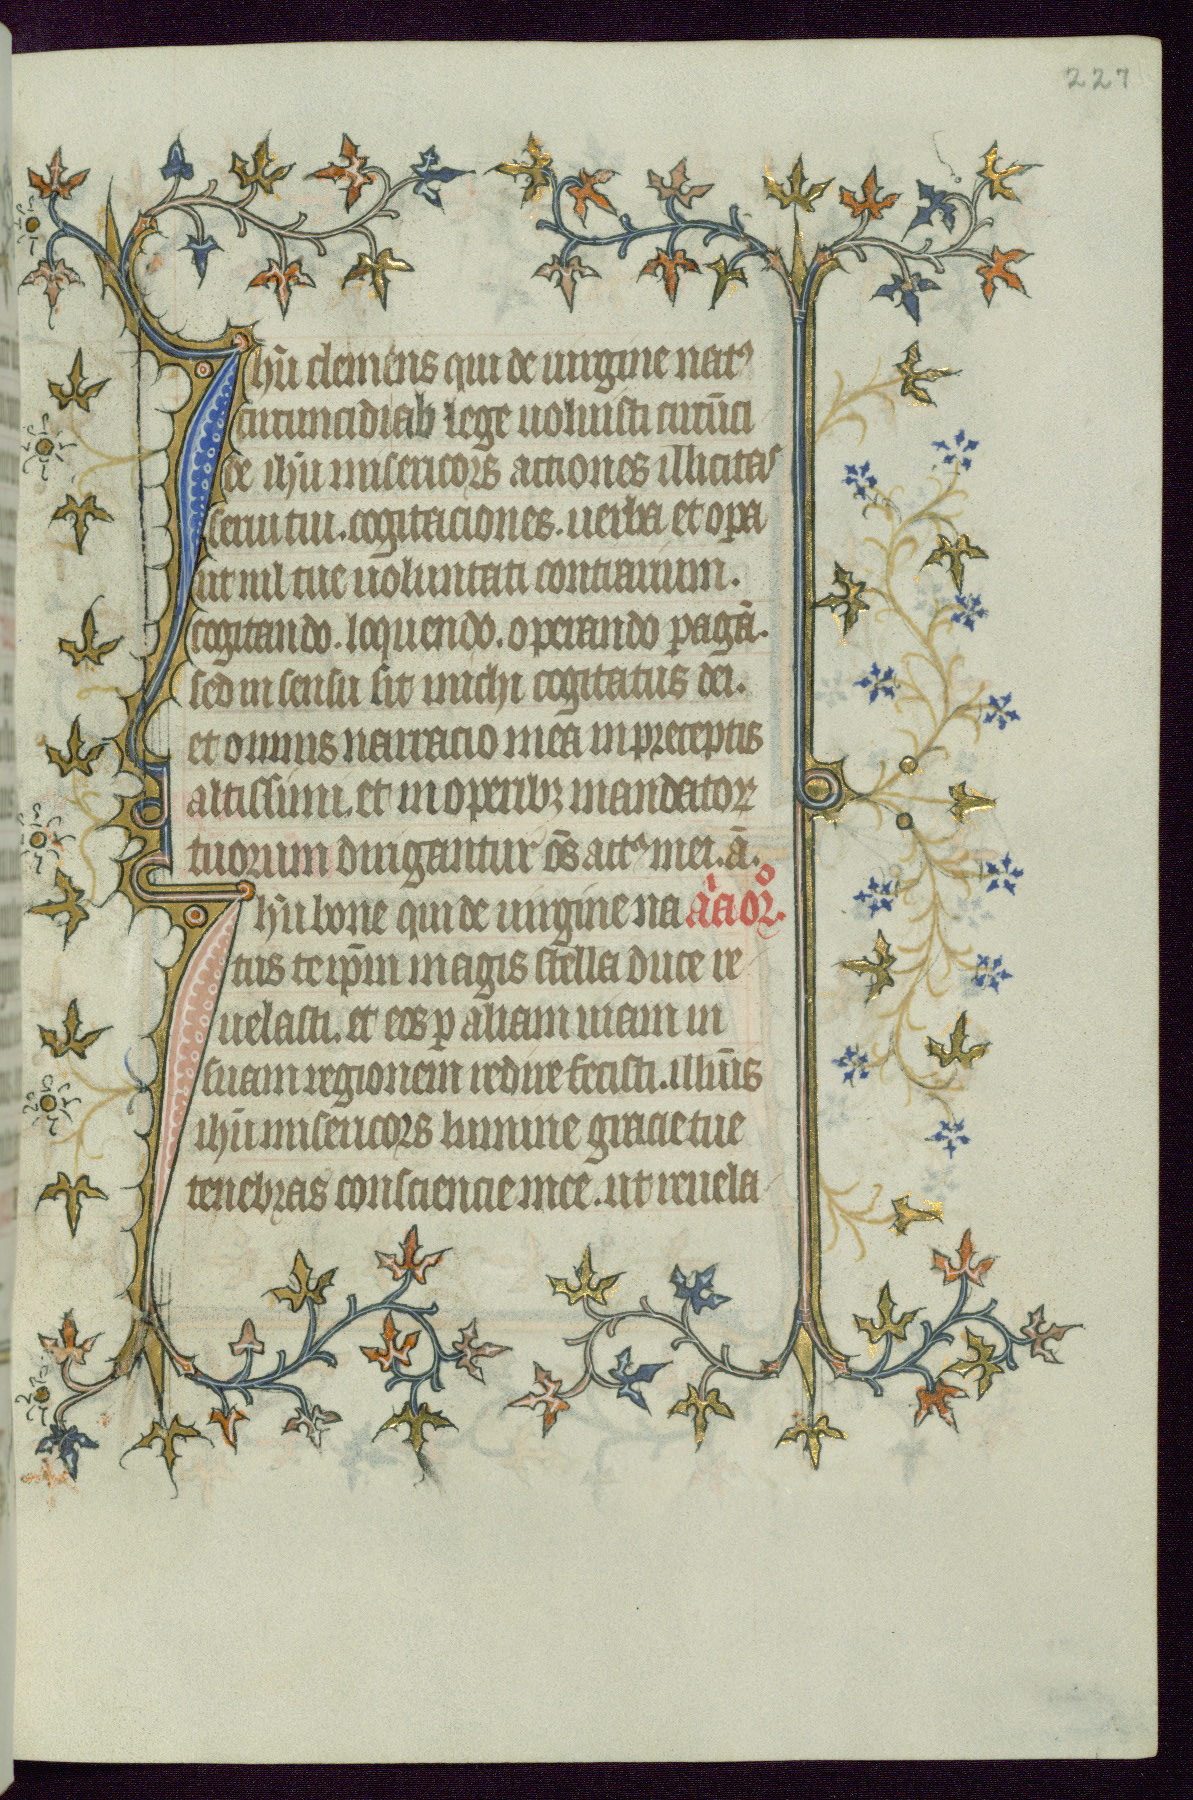 227
Ihū clemens qui de uirgine natꝰ
circuncidi ab lege uoluisti circūci
de ihū misericors actiones illicitas
serui tui. cogitaciones. uerba et opa
ut nil tue uoluntati contrarium.
cogitando. loquendo. operando pagā.
sed in sensu sit michi cogitatus dei.
et omnis narracio mea in preceptis
altissimi. et in operibꝫ mandatoꝝ
tuorum dirigantur oēs actꝰ mei. ā.
Ihū bone qui de uirgine na alia or̄o.
tus te ip̄m magis stella duce re
uelasti. et eos ꝑ aliam uiam in
suam regionem redire fecisti. illumīs
ihū misericors lumine gracie tue
tenebras consciencie mee. ut reuela